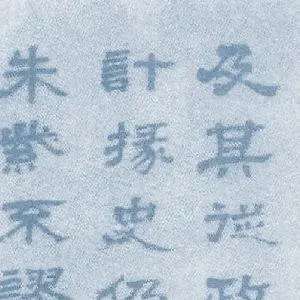 及其從政
計掾史仍
朱紫不謬